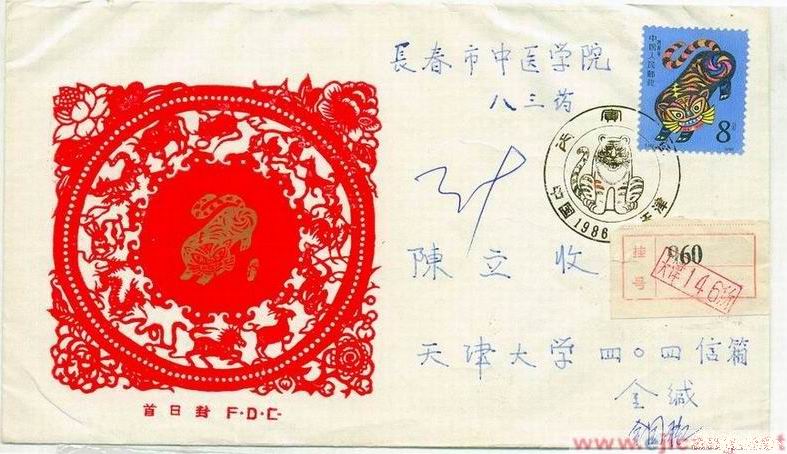 長春市中医学院
八三药
陳立收
天津大学四〇四信箱
金缄
中国人民邮政
8
丙寅年
中国 1986 天津
挂号
060
天津146
首日封 F·D·C·
www.cjicang.net